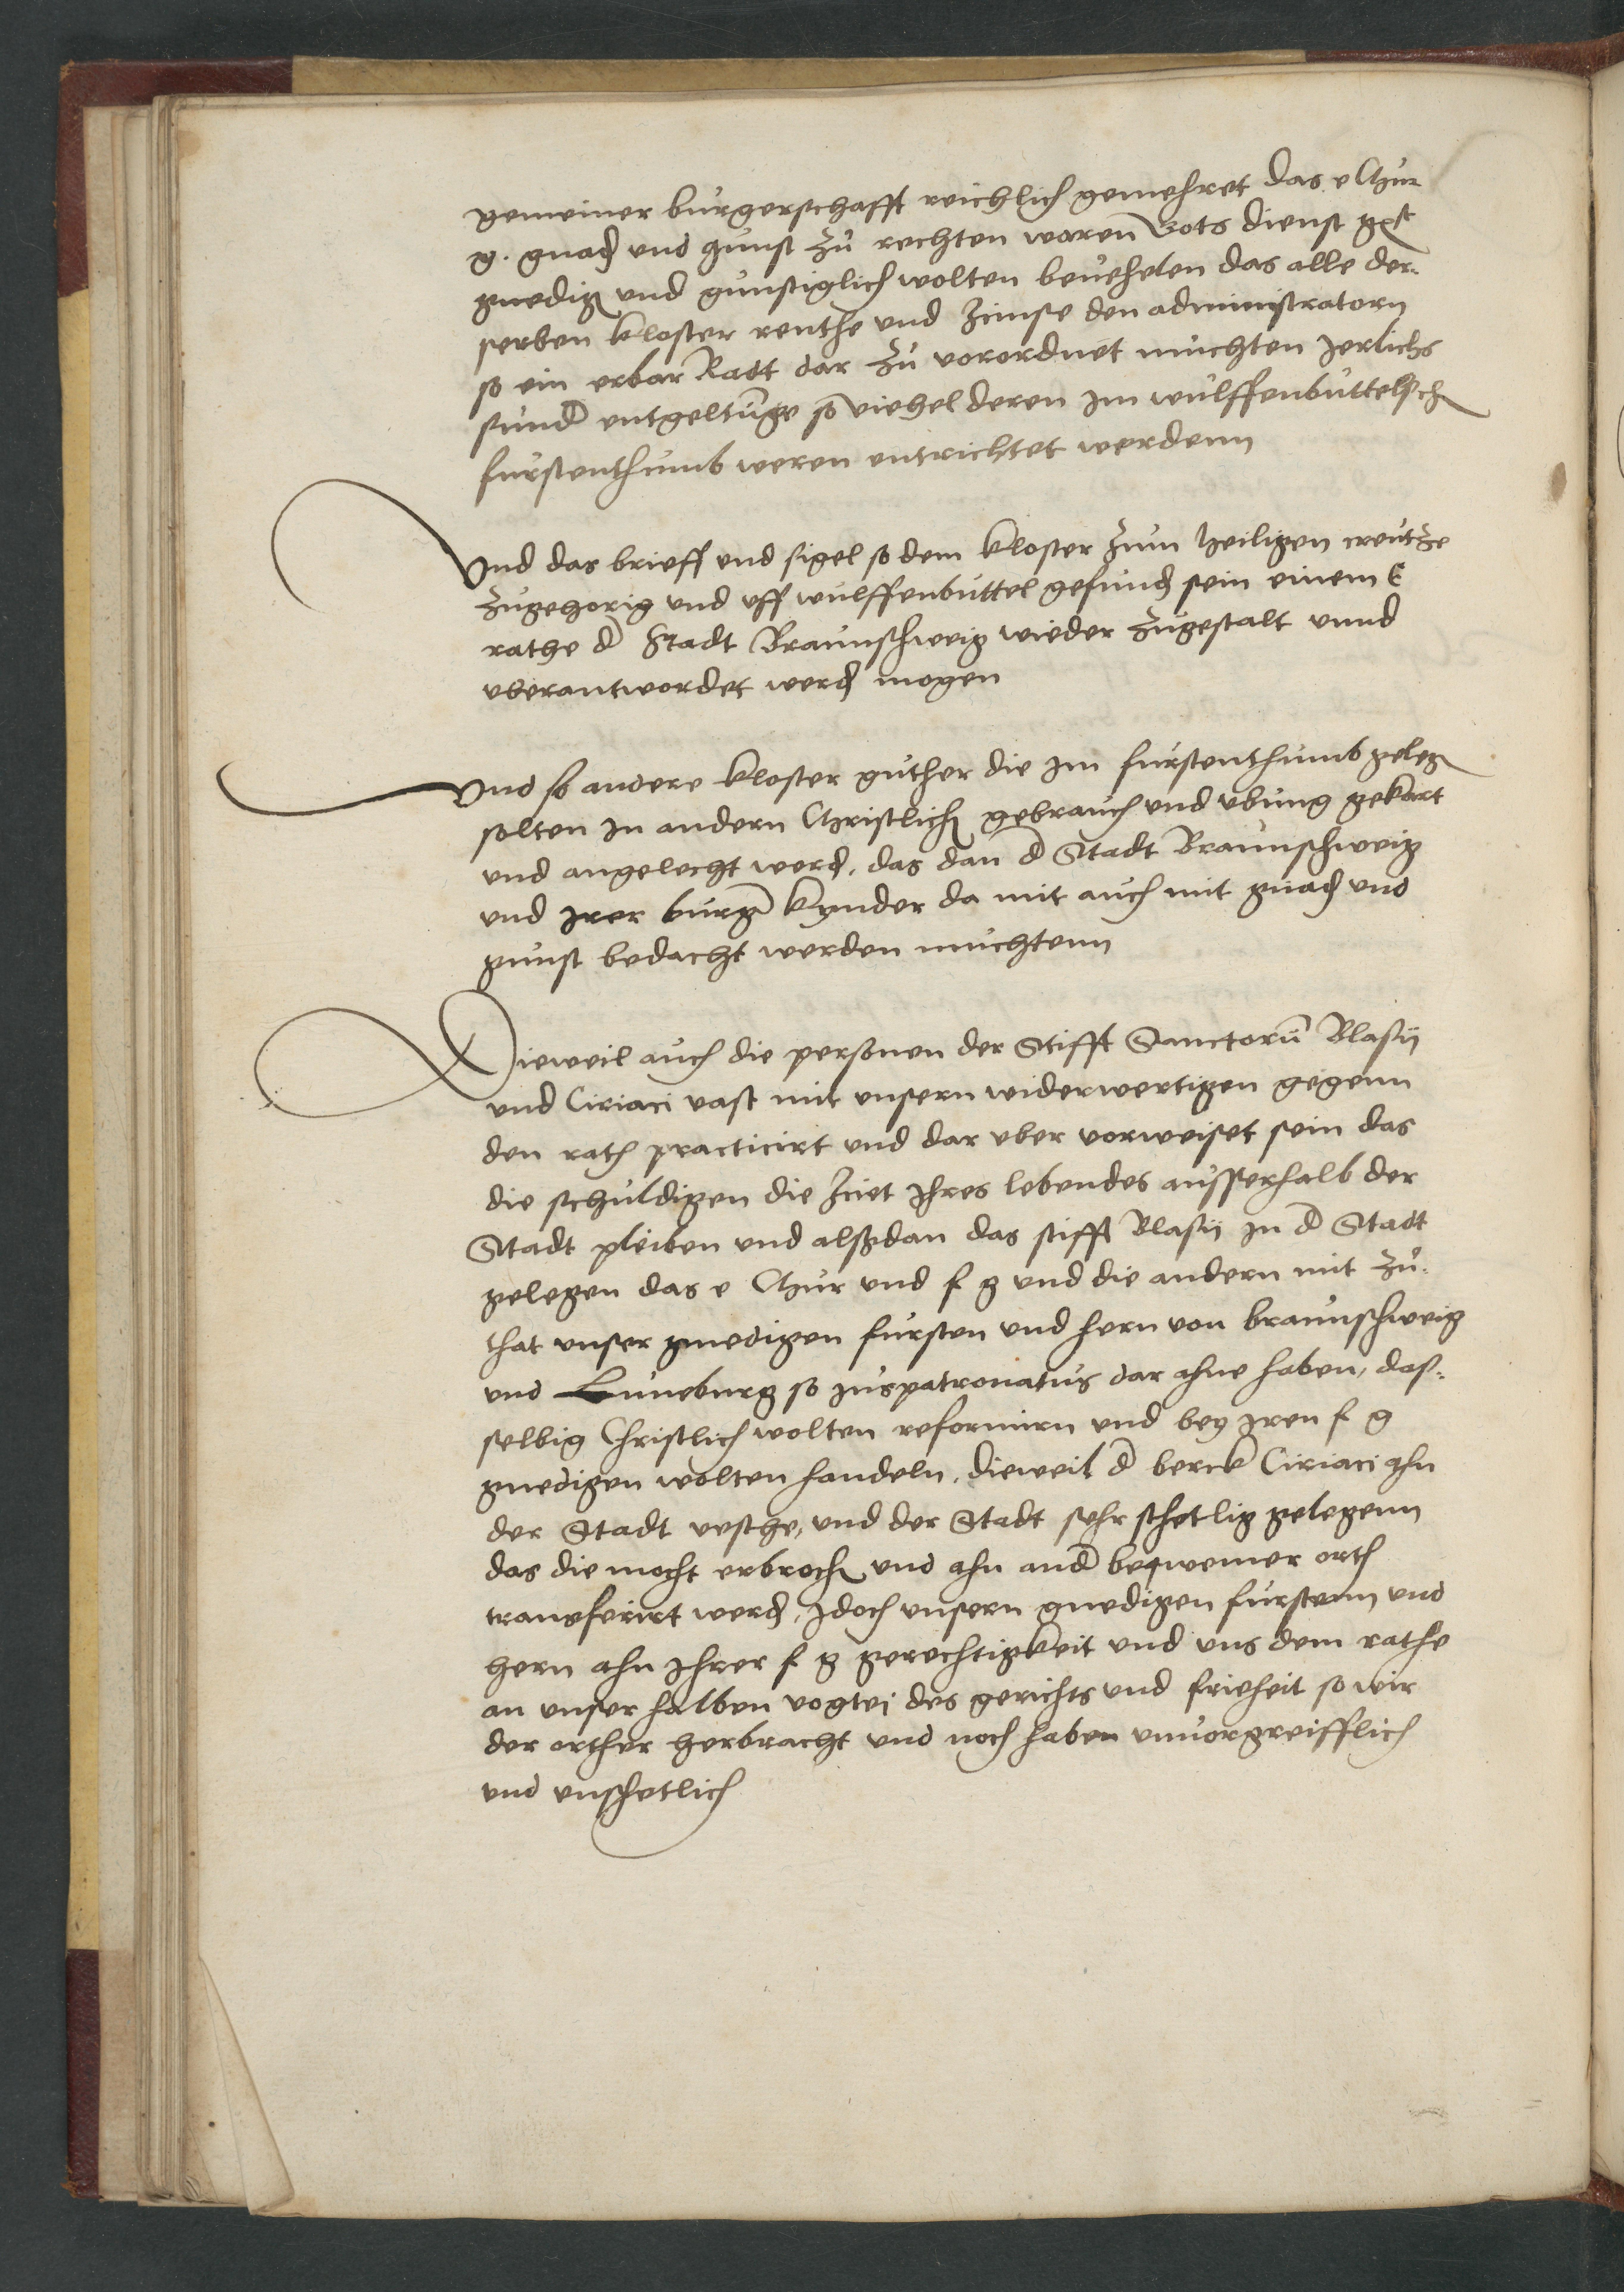 gemeiner burgerschafft reichlich gemehret das e Chur
g. gnad und gunst zu rechten waren Gots dienst
gnedig und gunstiglich wolten bevehelen das alle der-
selben kloster renthe und Zinse den administratorn
so ein erbar Radt dar zu vorordnet muchten Jerlichs
sund entgeltunge so viehel deren Im wulffenbuttelsch
furstenthumb weren entrichtet werdenn
Und das brieff und sigel so dem kloster zum heiligen creutze
zugehorig und uff wulffenbuttel gefund sein einem E
rathe d Stadt Braunschweig wieder zugestalt unnd
uberantwordet werd mogen
Und so andere kloster guther die Im furstenthumb geleg
solten In andern Christlich gebrauch und ubung gekart
und angelecht werd, das dan d Stadt Braunschweig
und Irer burg kynder da mit auch mit gnad und
gunst bedacht werden muchtenn
Dieweil auch die personen der Stifft Sanctorum Blasij
und Ciriaci vast mit unsern widerwertigen gegenn
den rath practicirt und dar uber vorweiset sein das
die schuldigen die Zciet Ihres lebendes ausserhalb der
Stadt pleiben und alßdan das stifft Blasij In d Stadt
gelegen das e Chur und f g und die andern mit zu-
that unser gnedigen fursten und hern von braunschweig
und Luneburg so Juspatronatus dar ahne haben, daß-
selbig Christlich wolten reformirn und bey Iren f g
gnedigen wolten handeln, dieweil d berck Ciriaci ahn
der Stadt vesthe, und der Stadt sehr schetlig gelegenn
das die mocht erbroch und ahn and beqwemer orth
transferirt werd, Idoch unsern gnedigen furstenn und
hern ahn Ihrer f g gerechtigkeit und uns dem rathe
an unser halben vogtej des gerichts und frieheit so wir
der orther herbracht und noch haben unvorgreifflich
und unschetlich